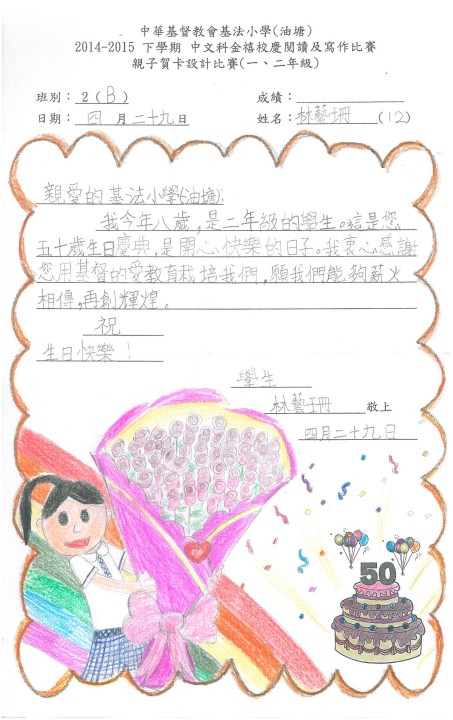 中華基督教會基法小學(油塘)
2014-2015 下學期 中文科金禧校慶閱讀及寫作比賽
親子賀卡設計比賽(一、二年級)
班別： 2 (B) 成績：
日期： 四 月 二十九 日 姓名： 林藝珊 (12)
親愛的基法小學(油塘)：
我今年八歲，是二年級的學生。這是您
五十歲生日慶典，是開心快樂的日子。我衷心感謝
您用基督的愛教育栽培我們，願我們能夠薪火
相傳，再創輝煌。
祝
生日快樂！
學生
林藝珊 敬上
四月二十九日
50